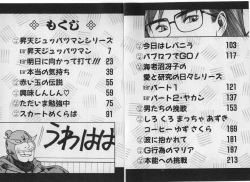 もくじ
昇天ジュッパツマンシリーズ
昇天ジュッパツマン 7
明日に向かって打て!!! 23
本当の気持ち 39
赤い玉の伝説 55
興味しんしん♡ 59
ただいま勉強中 75
スカートめくらば 91
うわはは
今日はしバこう 103
パブロフでGO! 117
海老沼冴子の
愛と研究の日々シリーズ
パート1 121
パート2・ヤカン 137
男たちの挽歌 153
しろ くろ まっちゃ あずき
コーヒー ゆず さくら 169
波に抱かれて 181
G行為のマリア 197
本能への挑戦 213